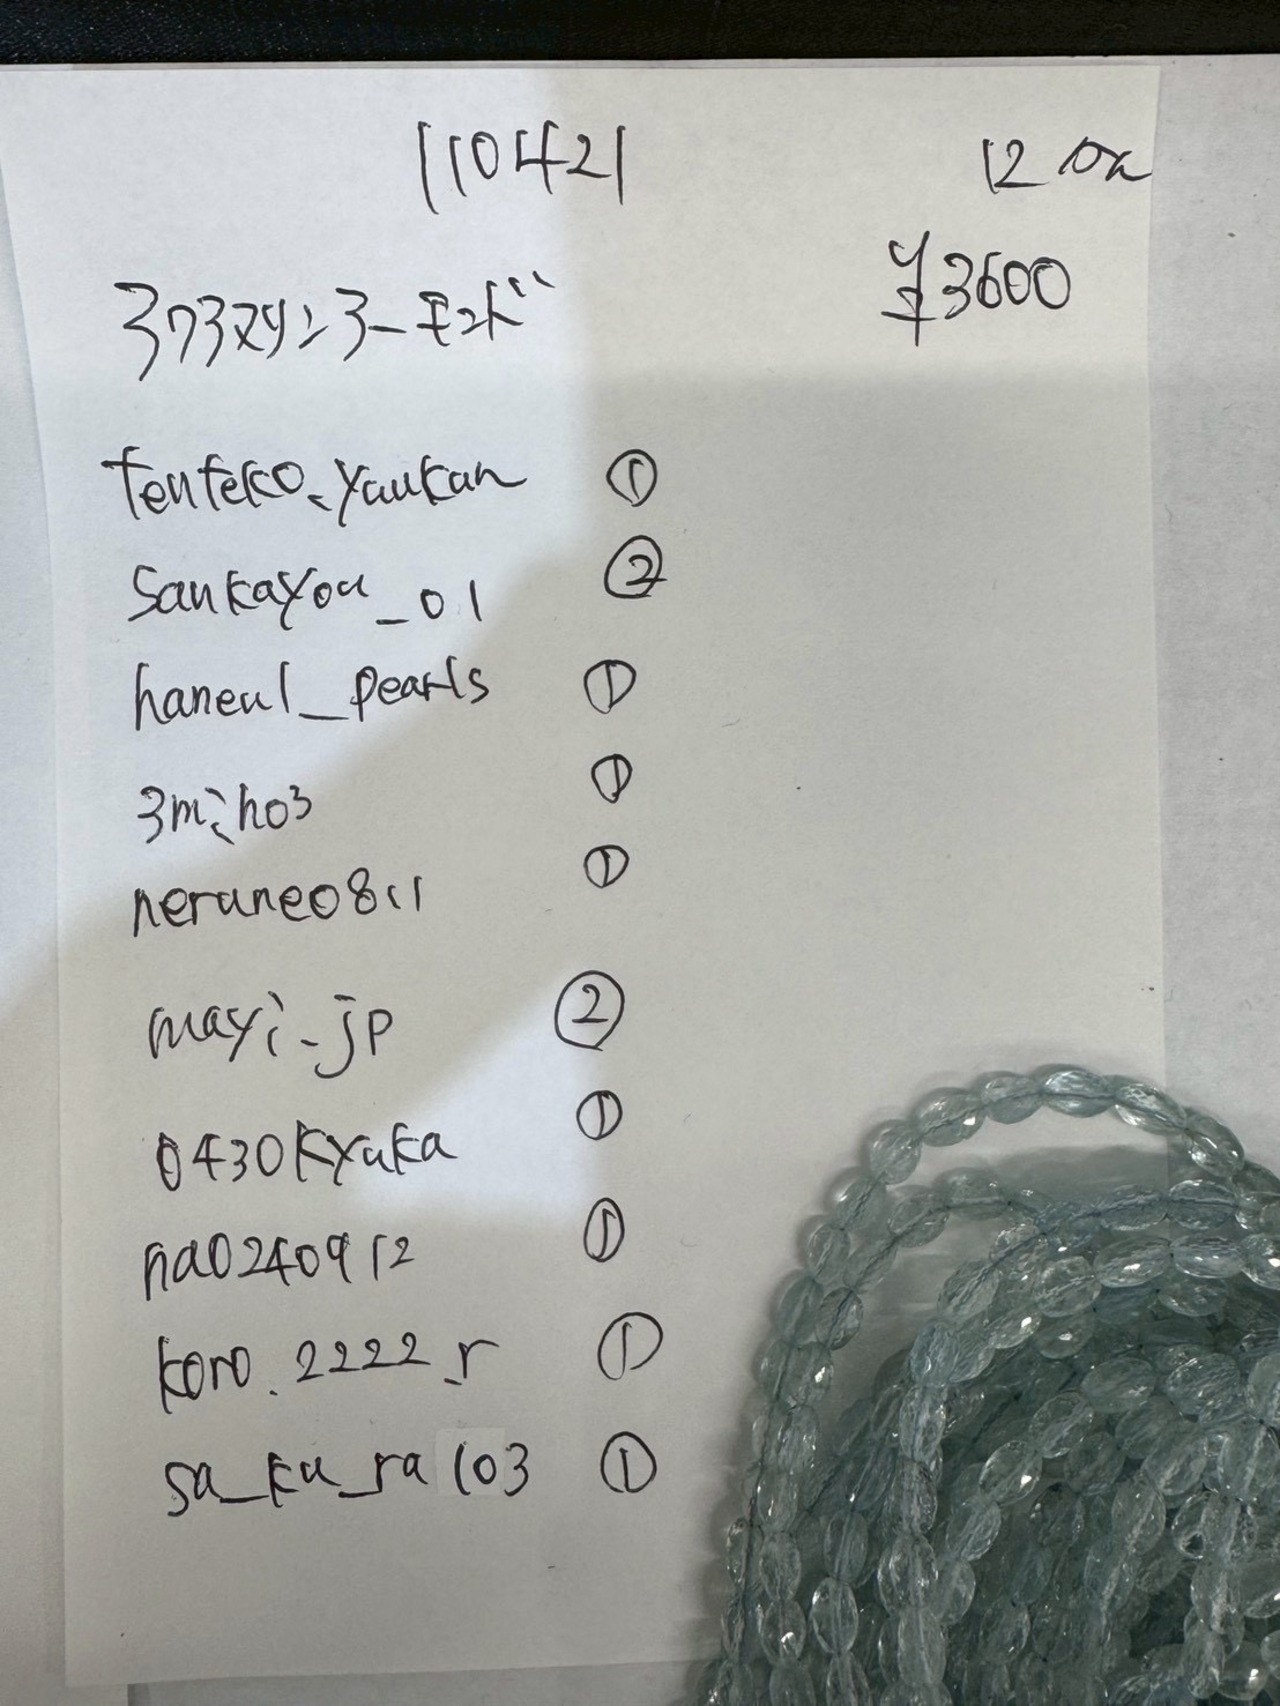 110421
12
¥3600
tenteko.yaukan ①
Sankayou_01 ②
haneul_pearls ①
3miho3 ①
nerune0811 ①
mayi_jp ②
0430kyuka ①
na0240912 ①
koro.2222_r ①
sa_ku_ra103 ①